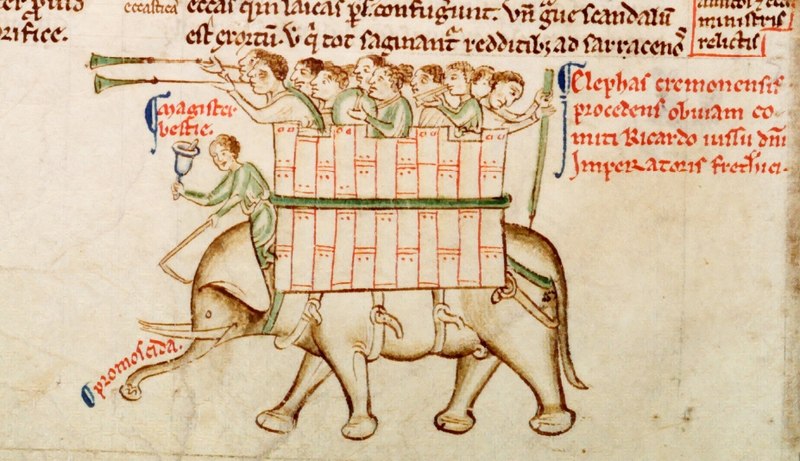 ter p'us
orifice.
eccastica
eccas quin laicas pl. confugerunt. Un gue scandalum
est exortum. v q tot saginant redditibz ad sarracenos
ministris
relictis
magister
bestie.
Elephas cremonensis
procedens obuiam co-
miti Ricardo iussu dni
Imperatoris fretherici.
promoscida.